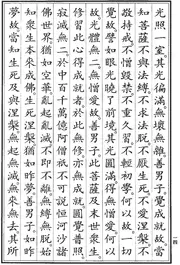 光照一室其光徧滿無壞無雜善男子覺成就故當
知菩薩不與法縛不求法脫不厭生死不愛涅槃不
敬持戒不憎毀禁不重久習不輕初學何以故一切
覺故譬如眼光曉了前境其光圓滿得無憎愛何以
故光體無二無憎愛故善男子此菩薩及末世眾生
修習此心得成就者於此無修亦無成就圓覺普照
寂滅無二於中百千萬億阿僧祇不可說恒河沙諸
佛世界猶如空華亂起亂滅不即不離無縛無脫始
知眾生本來成佛生死涅槃猶如昨夢善男子如昨
夢故當知生死及與涅槃無起無滅無來無去其所
一四